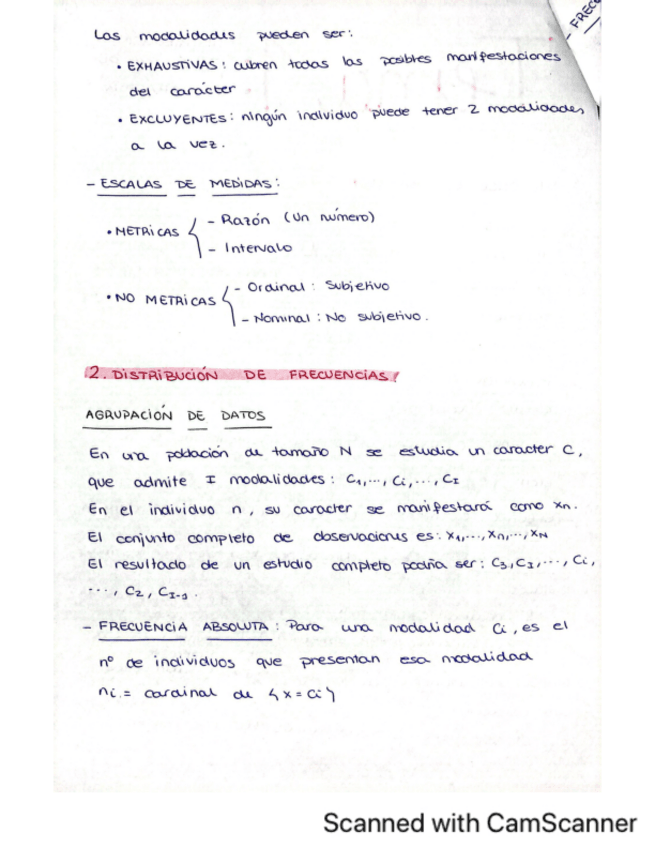 - FREC
Las modalidades pueden ser:
• EXHAUSTIVAS: cubren todas las posibles manifestaciones
del carácter
• EXCLUYENTES: ningún individuo puede tener 2 modalidades
a la vez.
- ESCALAS DE MEDIDAS:
• METRICAS { - Razón (un número)
- Intervalo
• NO METRICAS { - Ordinal: Subjetivo
- Nominal: No subjetivo.
2. DISTRIBUCIÓN DE FRECUENCIAS/
AGRUPACIÓN DE DATOS
En una población de tamaño N se estudia un caracter C,
que admite I modalidades: C₁,..., Ci,..., CI
En el individuo n, su caracter se manifestará como xn.
El conjunto completo de observaciones es: x₁,..., xn,..., xN
El resultado de un estudio completo podría ser: C₃, CI,..., Ci,
..., C₂, CI-3.
- FRECUENCIA ABSOLUTA: Para una modalidad Ci, es el
nº de individuos que presentan esa modalidad
ni = cardinal de {x = ci}
Scanned with CamScanner